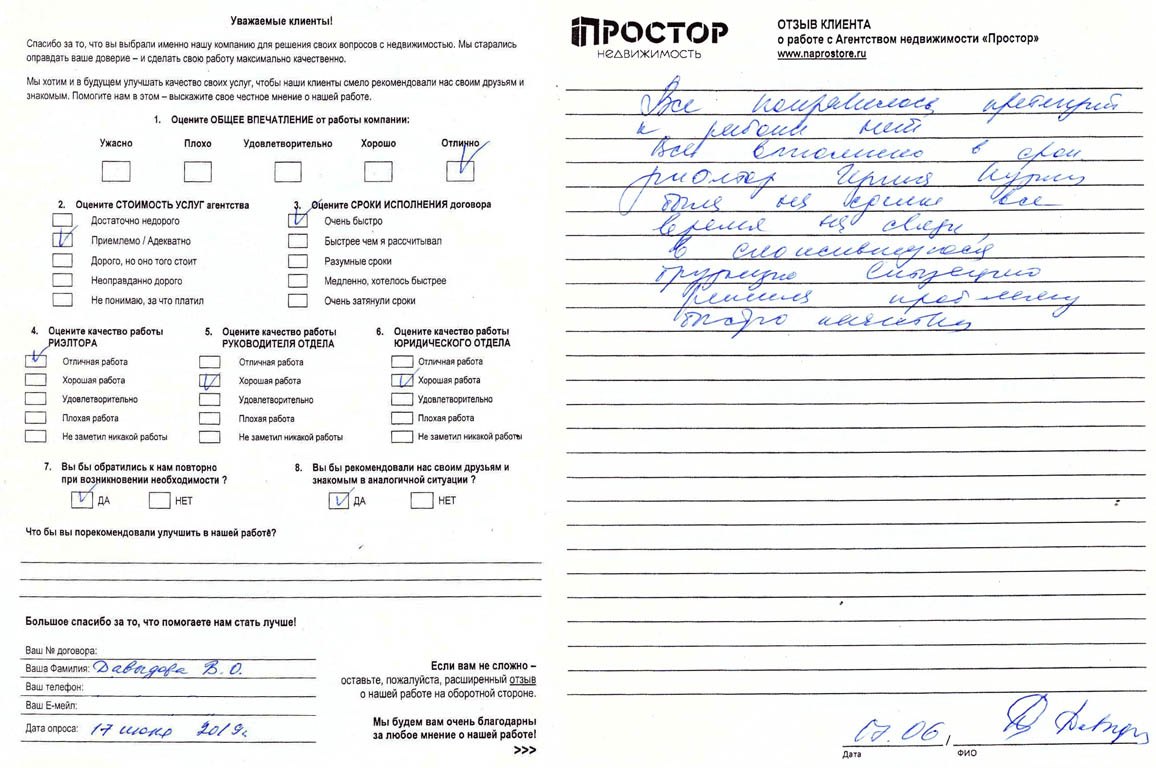 Уважаемые клиенты!
Спасибо за то, что вы выбрали именно нашу компанию для решения своих вопросов с недвижимостью. Мы старались
оправдать ваше доверие – и сделать свою работу максимально качественно.
Мы хотим и в будущем улучшать качество своих услуг, чтобы наши клиенты смело рекомендовали нас своим друзьям и
знакомым. Помогите нам в этом – выскажите свое честное мнение о нашей работе.
1. Оцените ОБЩЕЕ ВПЕЧАТЛЕНИЕ от работы компании:
Ужасно Плохо Удовлетворительно Хорошо Отлично
2. Оцените СТОИМОСТЬ УСЛУГ агентства
Достаточно недорого
Приемлемо / Адекватно
Дорого, но оно того стоит
Неоправданно дорого
Не понимаю, за что платил
3. Оцените СРОКИ ИСПОЛНЕНИЯ договора
Очень быстро
Быстрее чем я рассчитывал
Разумные сроки
Медленно, хотелось быстрее
Очень затянули сроки
4. Оцените качество работы
РИЭЛТОРА
Отличная работа
Хорошая работа
Удовлетворительно
Плохая работа
Не заметил никакой работы
5. Оцените качество работы
РУКОВОДИТЕЛЯ ОТДЕЛА
Отличная работа
Хорошая работа
Удовлетворительно
Плохая работа
Не заметил никакой работы
6. Оцените качество работы
ЮРИДИЧЕСКОГО ОТДЕЛА
Отличная работа
Хорошая работа
Удовлетворительно
Плохая работа
Не заметил никакой работы
7. Вы бы обратились к нам повторно
при возникновении необходимости ?
ДА НЕТ
8. Вы бы рекомендовали нас своим друзьям и
знакомым в аналогичной ситуации ?
ДА НЕТ
Что бы вы порекомендовали улучшить в нашей работе?
Большое спасибо за то, что помогаете нам стать лучше!
Ваш № договора:
Ваша Фамилия: Давыдова В. О.
Ваш телефон:
Ваш E-мейл:
Дата опроса: 17 июня 2019г.
Если вам не сложно –
оставьте, пожалуйста, расширенный отзыв
о нашей работе на оборотной стороне.
Мы будем вам очень благодарны
за любое мнение о нашей работе!
>>>
ПРОСТОР
НЕДВИЖИМОСТЬ
ОТЗЫВ КЛИЕНТА
о работе с Агентством недвижимости «Простор»
www.naprostore.ru
Все понравилось претензий
к работе нет
Все выполнено в срок
риэлтор Ирина
была на все
время на связи,
в сложившуюся
трудную ситуацию
решила проблему
быстро
07.06 / Давыд
Дата ФИО